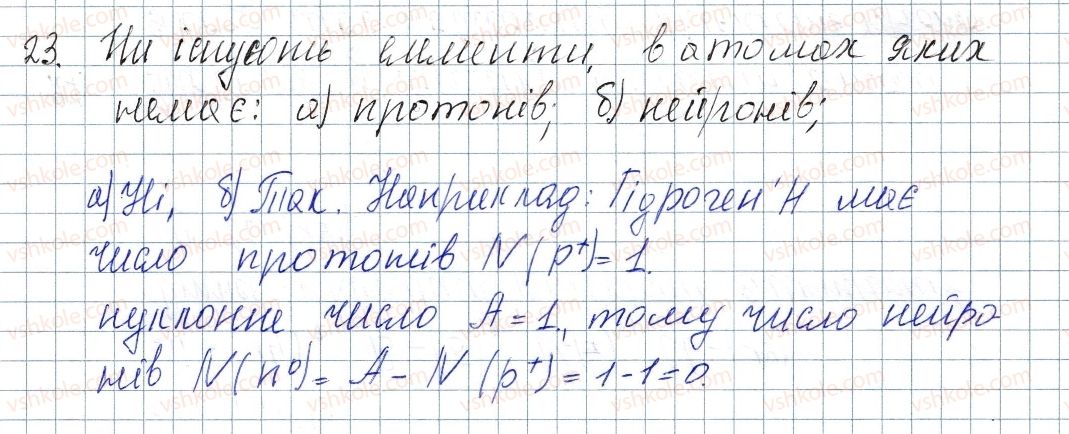 23. Чи існують елементи, в атомах яких
немає: а) протонів; б) нейронів;
а) Ні, б) Так. Наприклад: Гідроген ¹H має
число протонів N(p⁺)=1.
нуклонне число A=1, тому число нейро-
нів N(n⁰)= A - N(p⁺)=1-1=0.